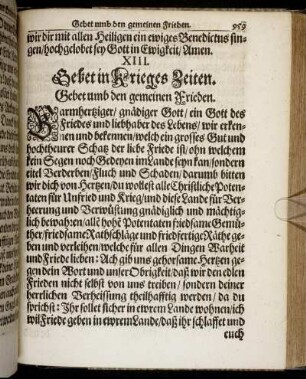 Gebet umb den gemeinen Frieden. 959
wir dir mit allen Heiligen ein ewiges Benedictus sin-
gen/hochgelobet sey Gott in Ewigkeit/Amen.
XIII.
Gebet in Krieges Zeiten.
Gebet umb den gemeinen Frieden.
Barmhertziger/gnädiger Gott/ein Gott des
Friedes und liebhaber des Lebens/wir erken-
nen und bekennen/welch ein grosses Gut und
hochtheurer Schatz der liebe Friede ist/ohn welchem
kein Segen noch Gedeyen im Lande seyn kan/sondern
eitel Verderben/Fluch und Schaden/darumb bitten
wir dich von Hertzen/du wollest alle Christliche Poten-
taten für Unfried und Krieg/und diese Lande für Ver-
heerung und Verwüstung gnädiglich und mächtig-
lich bewahren/allē hohē Potentaten friedsame Gemü-
ther/friedsame Rathschläge und friedfertige Räthe ge-
ben und verleihen/welche für allen Dingen Warheit
und Friede lieben: Ach gib uns gehorsame Hertzen ge-
gen dein Wort und unser Obrigkeit/daß wir den edlen
Frieden nicht selbst von uns treiben/sondern deiner
herrlichen Verheissung theilhafftig werden/da du
sprichst: Ihr sollet sicher in ewrem Lande wohnen/ich
wil Friede geben in ewrem Lande/daß ihr schlaffet und
euch